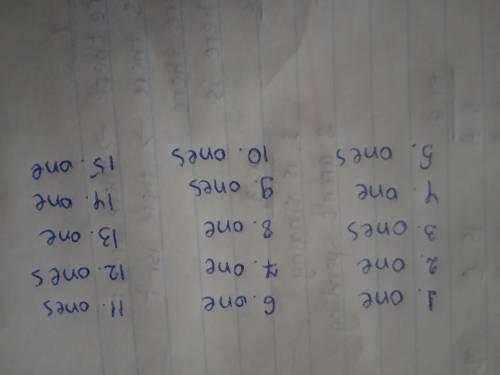 1. one
2. one
3. ones
4. one
5. ones
6. one
7. one
8. one
9. ones
10. ones
11. ones
12. ones
13. one
14. one
15. one